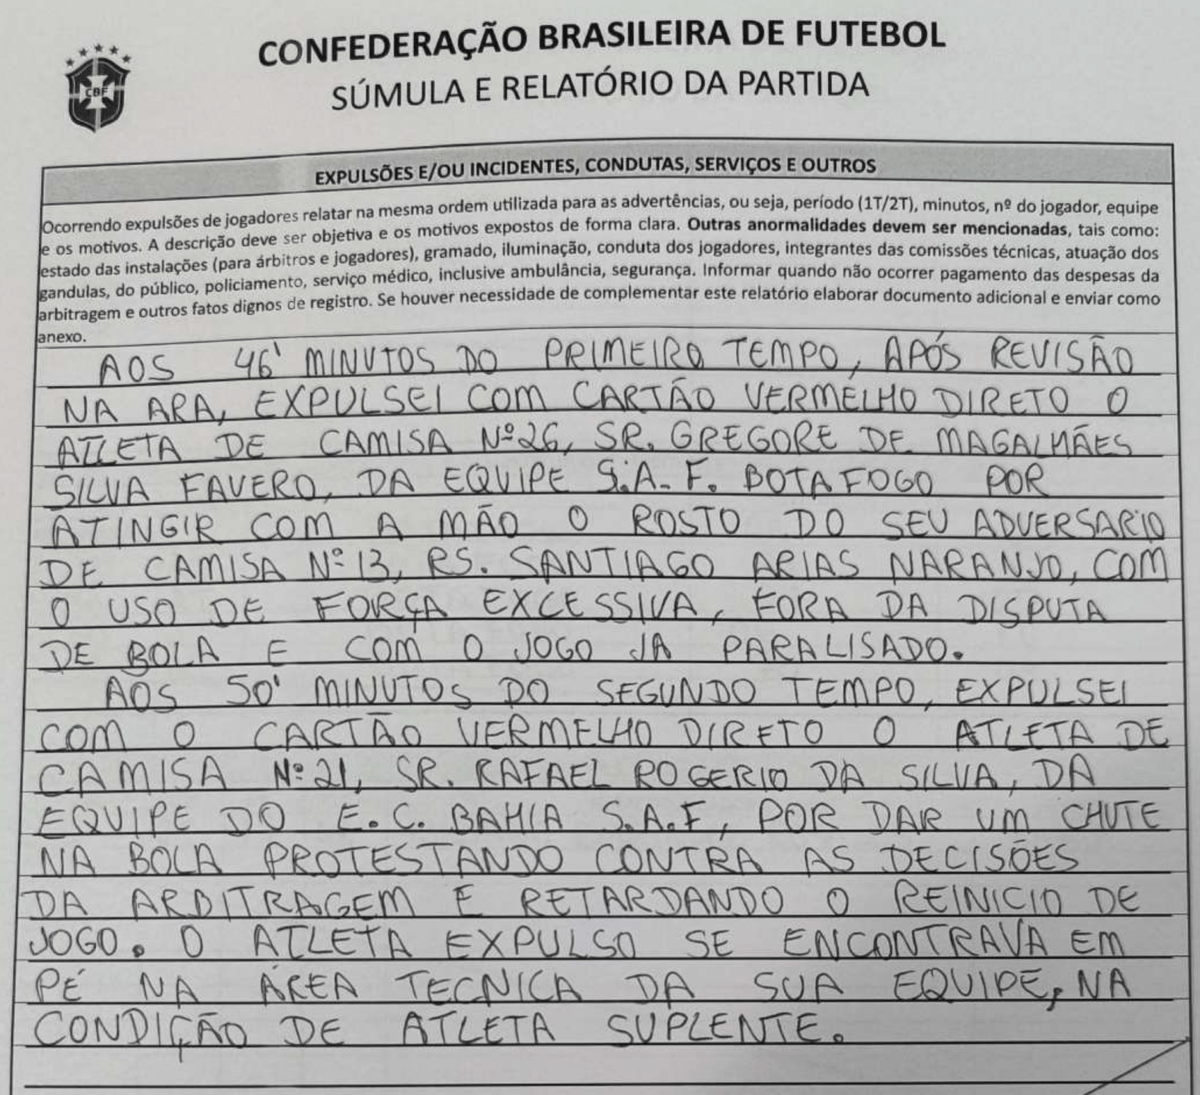 CBF
CONFEDERAÇÃO BRASILEIRA DE FUTEBOL
SÚMULA E RELATÓRIO DA PARTIDA
EXPULSÕES E/OU INCIDENTES, CONDUTAS, SERVIÇOS E OUTROS
Ocorrendo expulsões de jogadores relatar na mesma ordem utilizada para as advertências, ou seja, período (1T/2T), minutos, nº do jogador, equipe
e os motivos. A descrição deve ser objetiva e os motivos expostos de forma clara. Outras anormalidades devem ser mencionadas, tais como:
estado das instalações (para árbitros e jogadores), gramado, iluminação, conduta dos jogadores, integrantes das comissões técnicas, atuação dos
gandulas, do público, policiamento, serviço médico, inclusive ambulância, segurança. Informar quando não ocorrer pagamento das despesas da
arbitragem e outros fatos dignos de registro. Se houver necessidade de complementar este relatório elaborar documento adicional e enviar como
anexo.
AOS 46' MINUTOS DO PRIMEIRO TEMPO, APÓS REVISÃO
NA ARA, EXPULSEI COM CARTÃO VERMELHO DIRETO O
ATLETA DE CAMISA Nº 26, SR. GREGORE DE MAGALHÃES
SILVA FAVERO, DA EQUIPE S.A.F. BOTAFOGO POR
ATINGIR COM A MÃO O ROSTO DO SEU ADVERSARIO
DE CAMISA Nº 13, RS. SANTIAGO ARIAS NARANJO, COM
O USO DE FORÇA EXCESSIVA, FORA DA DISPUTA
DE BOLA E COM O JOGO JA PARALISADO.
AOS 50' MINUTOS DO SEGUNDO TEMPO, EXPULSEI
COM O CARTÃO VERMELHO DIRETO O ATLETA DE
CAMISA Nº 21, SR. RAFAEL ROGERIO DA SILVA, DA
EQUIPE DO E.C. BAHIA S.A.F, POR DAR UM CHUTE
NA BOLA PROTESTANDO CONTRA AS DECISÕES
DA ARBITRAGEM E RETARDANDO O REINICIO DE
JOGO. O ATLETA EXPULSO SE ENCONTRAVA EM
PÉ NA ÁREA TECNICA DA SUA EQUIPE, NA
CONDIÇÃO DE ATLETA SUPLENTE.